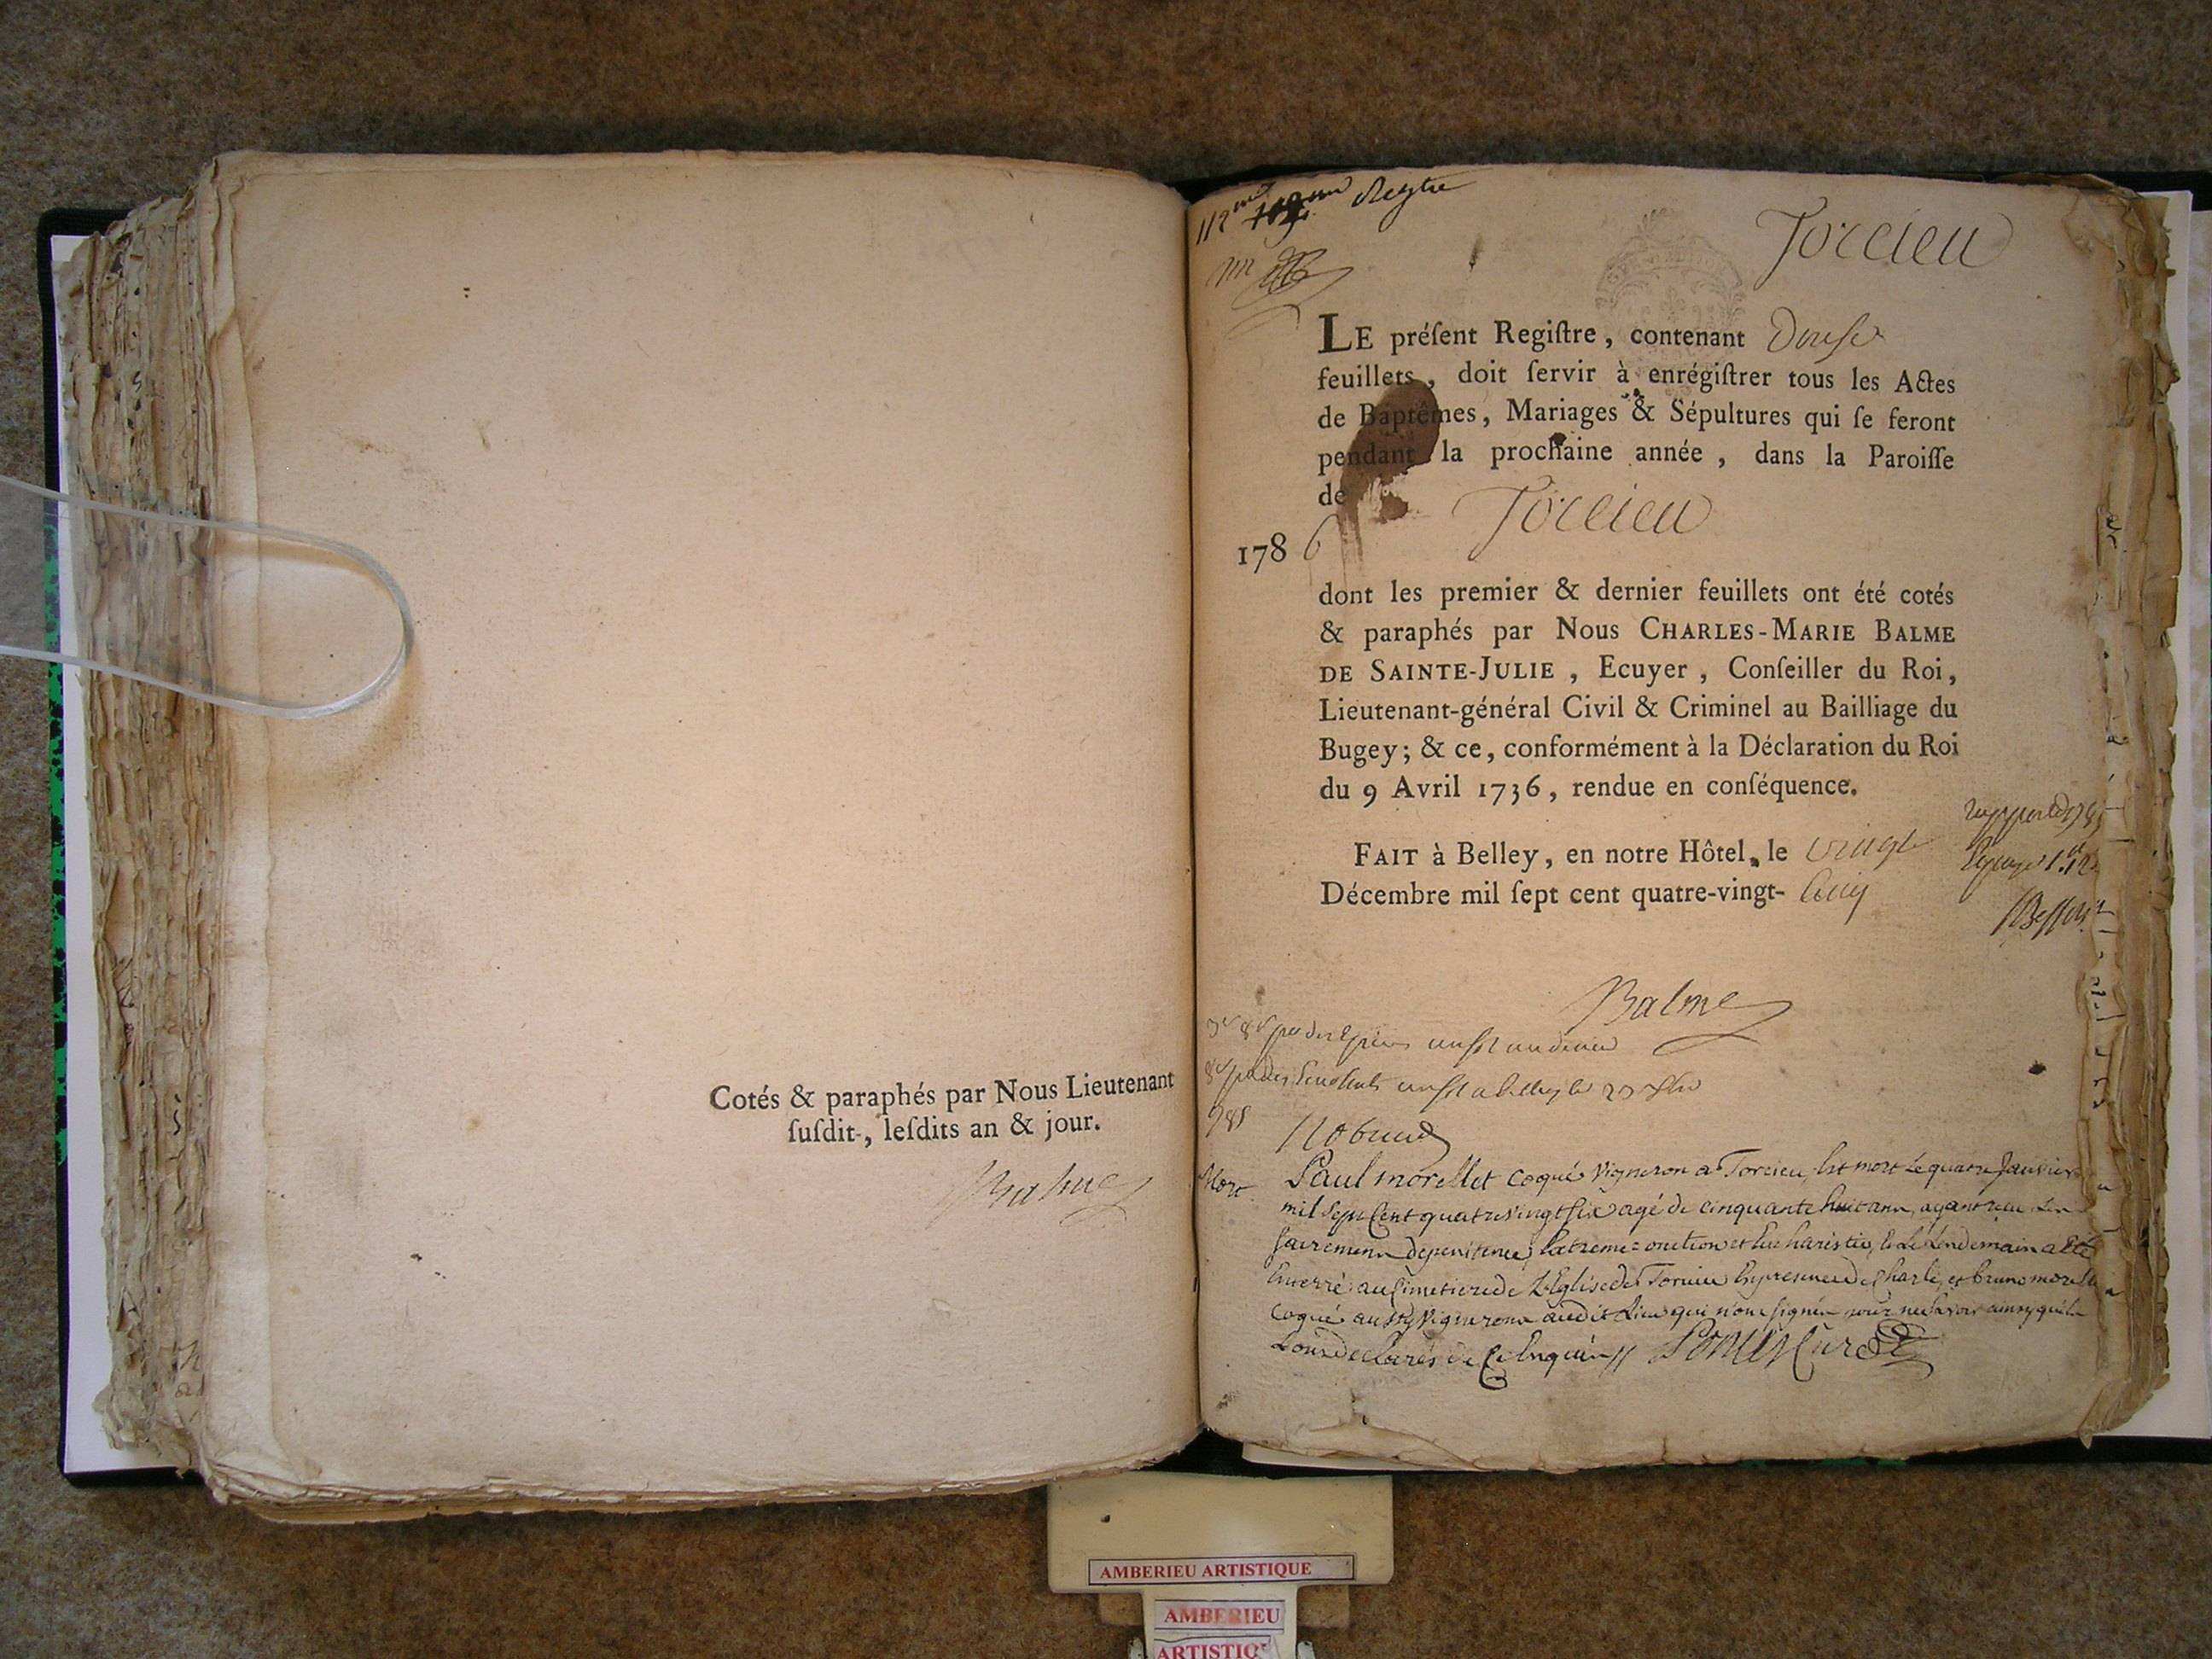 Cotés & paraphés par Nous Lieutenant
ſuſdit, leſdits an & jour.
Balme
112 Regtre
Torcieu
LE préſent Regiſtre, contenant Douse
feuillets, doit ſervir à enrégiſtrer tous les Actes
de Baptêmes, Mariages & Sépultures qui ſe feront
pendant la prochaine année, dans la Paroiſſe
de Torcieu
1786
dont les premier & dernier feuillets ont été cotés
& paraphés par Nous CHARLES-MARIE BALME
DE SAINTE-JULIE, Ecuyer, Conſeiller du Roi,
Lieutenant-général Civil & Criminel au Bailliage du
Bugey; & ce, conformément à la Déclaration du Roi
du 9 Avril 1736, rendue en conſéquence.
FAIT à Belley, en notre Hôtel, le vingt
Décembre mil ſept cent quatre-vingt-cinq
Balme
Mort
Paul morellet coqué vigneron a Torcieu est mort le quatre janvier
mil sept cent quatrevingt six agé de cinquante huit ans, ayant
de penitence, l'extreme=onction et l'eucharistie, et le lendemain a été
enterré au cimetiere de L'Eglise de Torcieu en presence de charle, et bruno
coqué aussy vignerons audit lieu qui n'ont signés pour ne savoir ainsy qu'ils
L'ont declarés de ce enquis //
AMBERIEU ARTISTIQUE
AMBERIEU
ARTISTIQ